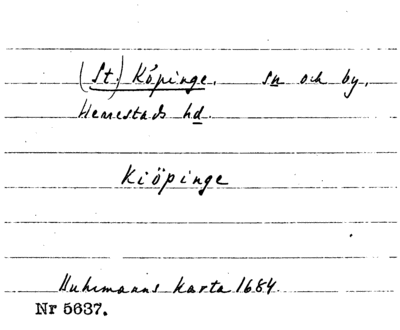 (St.) Köpinge. sn och by,
Herrestads hd.
Kiöpinge
Buhrmanns karta 1684
Nr 5637.